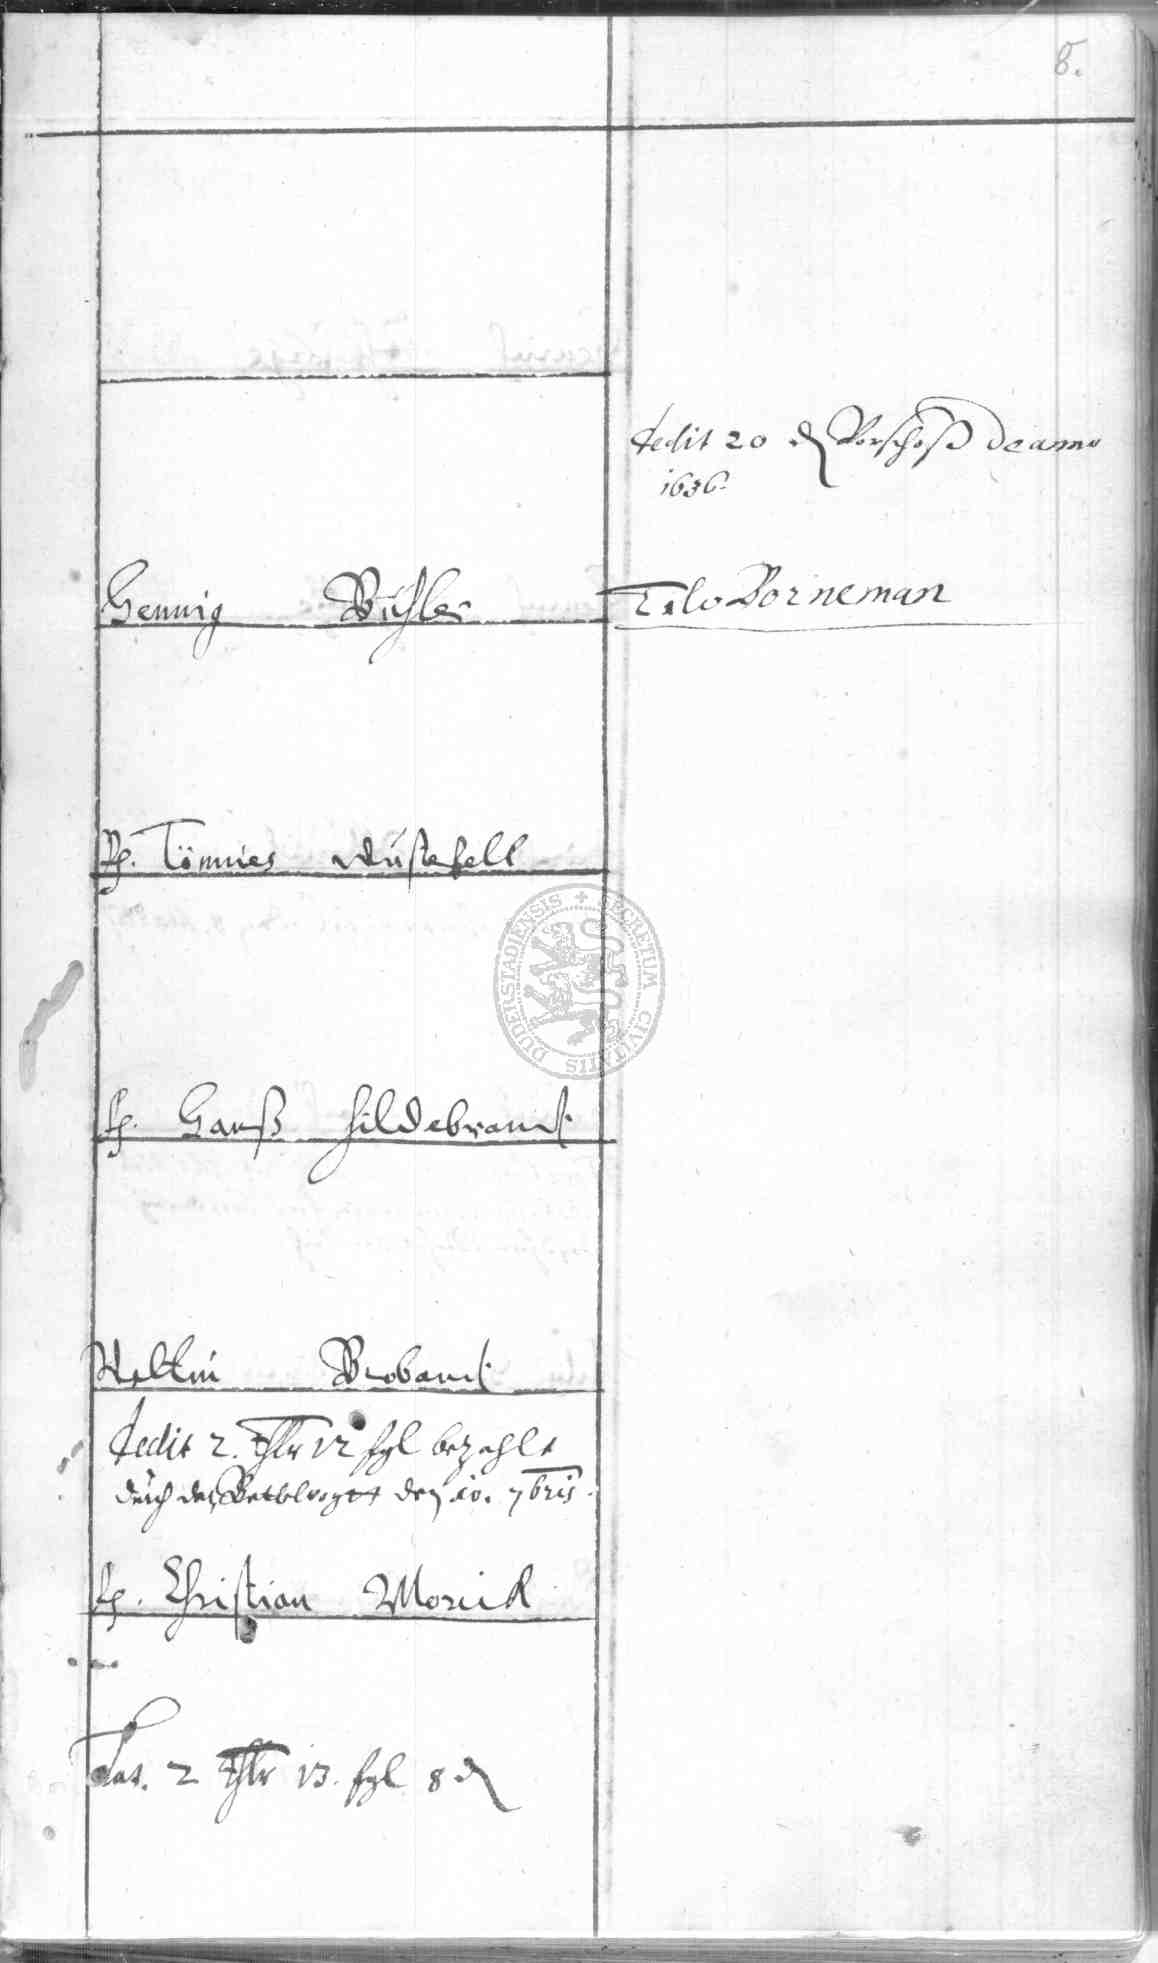 8.
dedit 20 ₰ Vorschoß de anno
1636.
Hennig Bühler
Tilo Borneman
H. Tönnies Wüstefelt
DUDERSTADIENSIS SECRETUM CIVITATIS
H. Hanß Hildebrandt
Veltin Brobandt
dedit 2. Thlr 12 sgl bezahlt
durch den den 10. 7bris.
H. Christian Morick
Lat. 2 Thlr 13. sgl 8 ₰